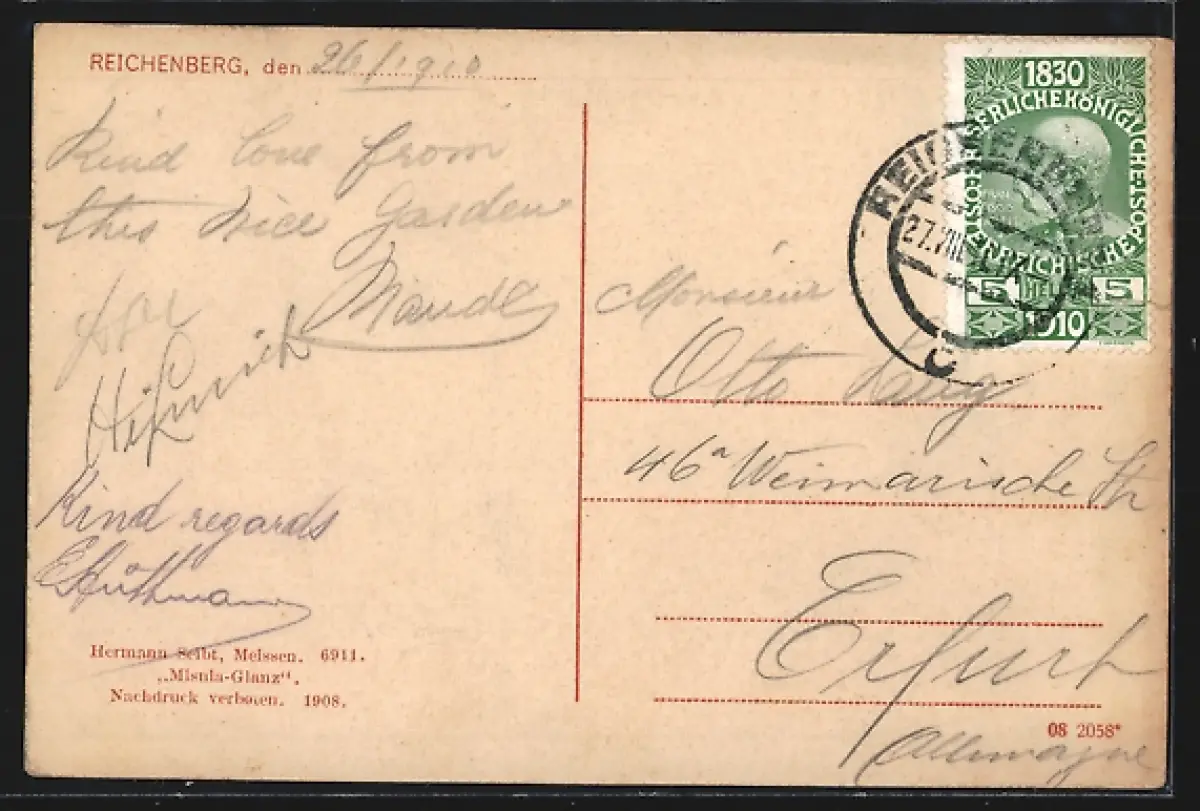 REICHENBERG, den 26/1910
Kind love from
this nice Garden
Maude
Kind regards
Hermann Seibt, Meissen. 6911.
„Misula-Glanz“.
Nachdruck verboten. 1908.
1830
KAISERLICHEKÖNIGLICHE
ÖSTERREICHISCHEPOST
5 HELLER 5
1910
REICHENBERG
27.VIII
C
Monsieur
Otto
46a Weimarische Str
Erfurt
Allemagne
08 2058*